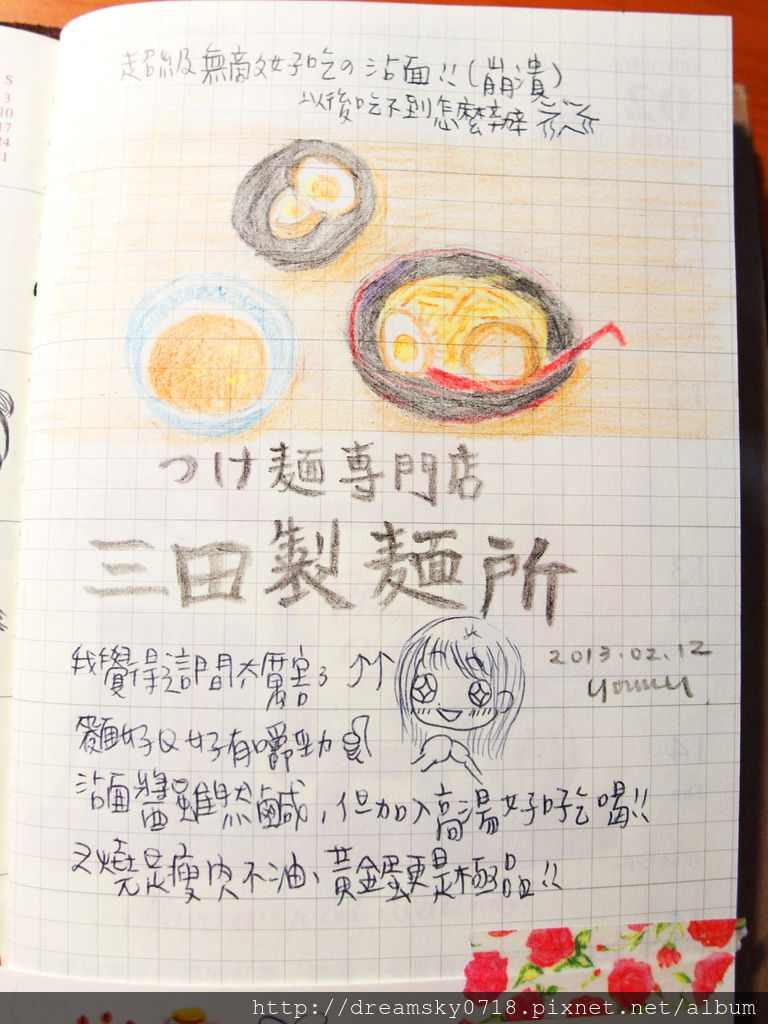 超級無敵好吃の沾面!!(崩潰)
以後吃不到怎麼辦
つけ麺専門店
三田製麺所
我覺得這間太厲害了↑↑
2013.02.12
麵好Q好有嚼勁
沾面醬雖然鹹,但加入高湯好好喝!!
叉燒是瘦肉不油、黃金蛋更是極品!!
S
3
10
17
24
1
http://dreamsky0718.pixnet.net/album